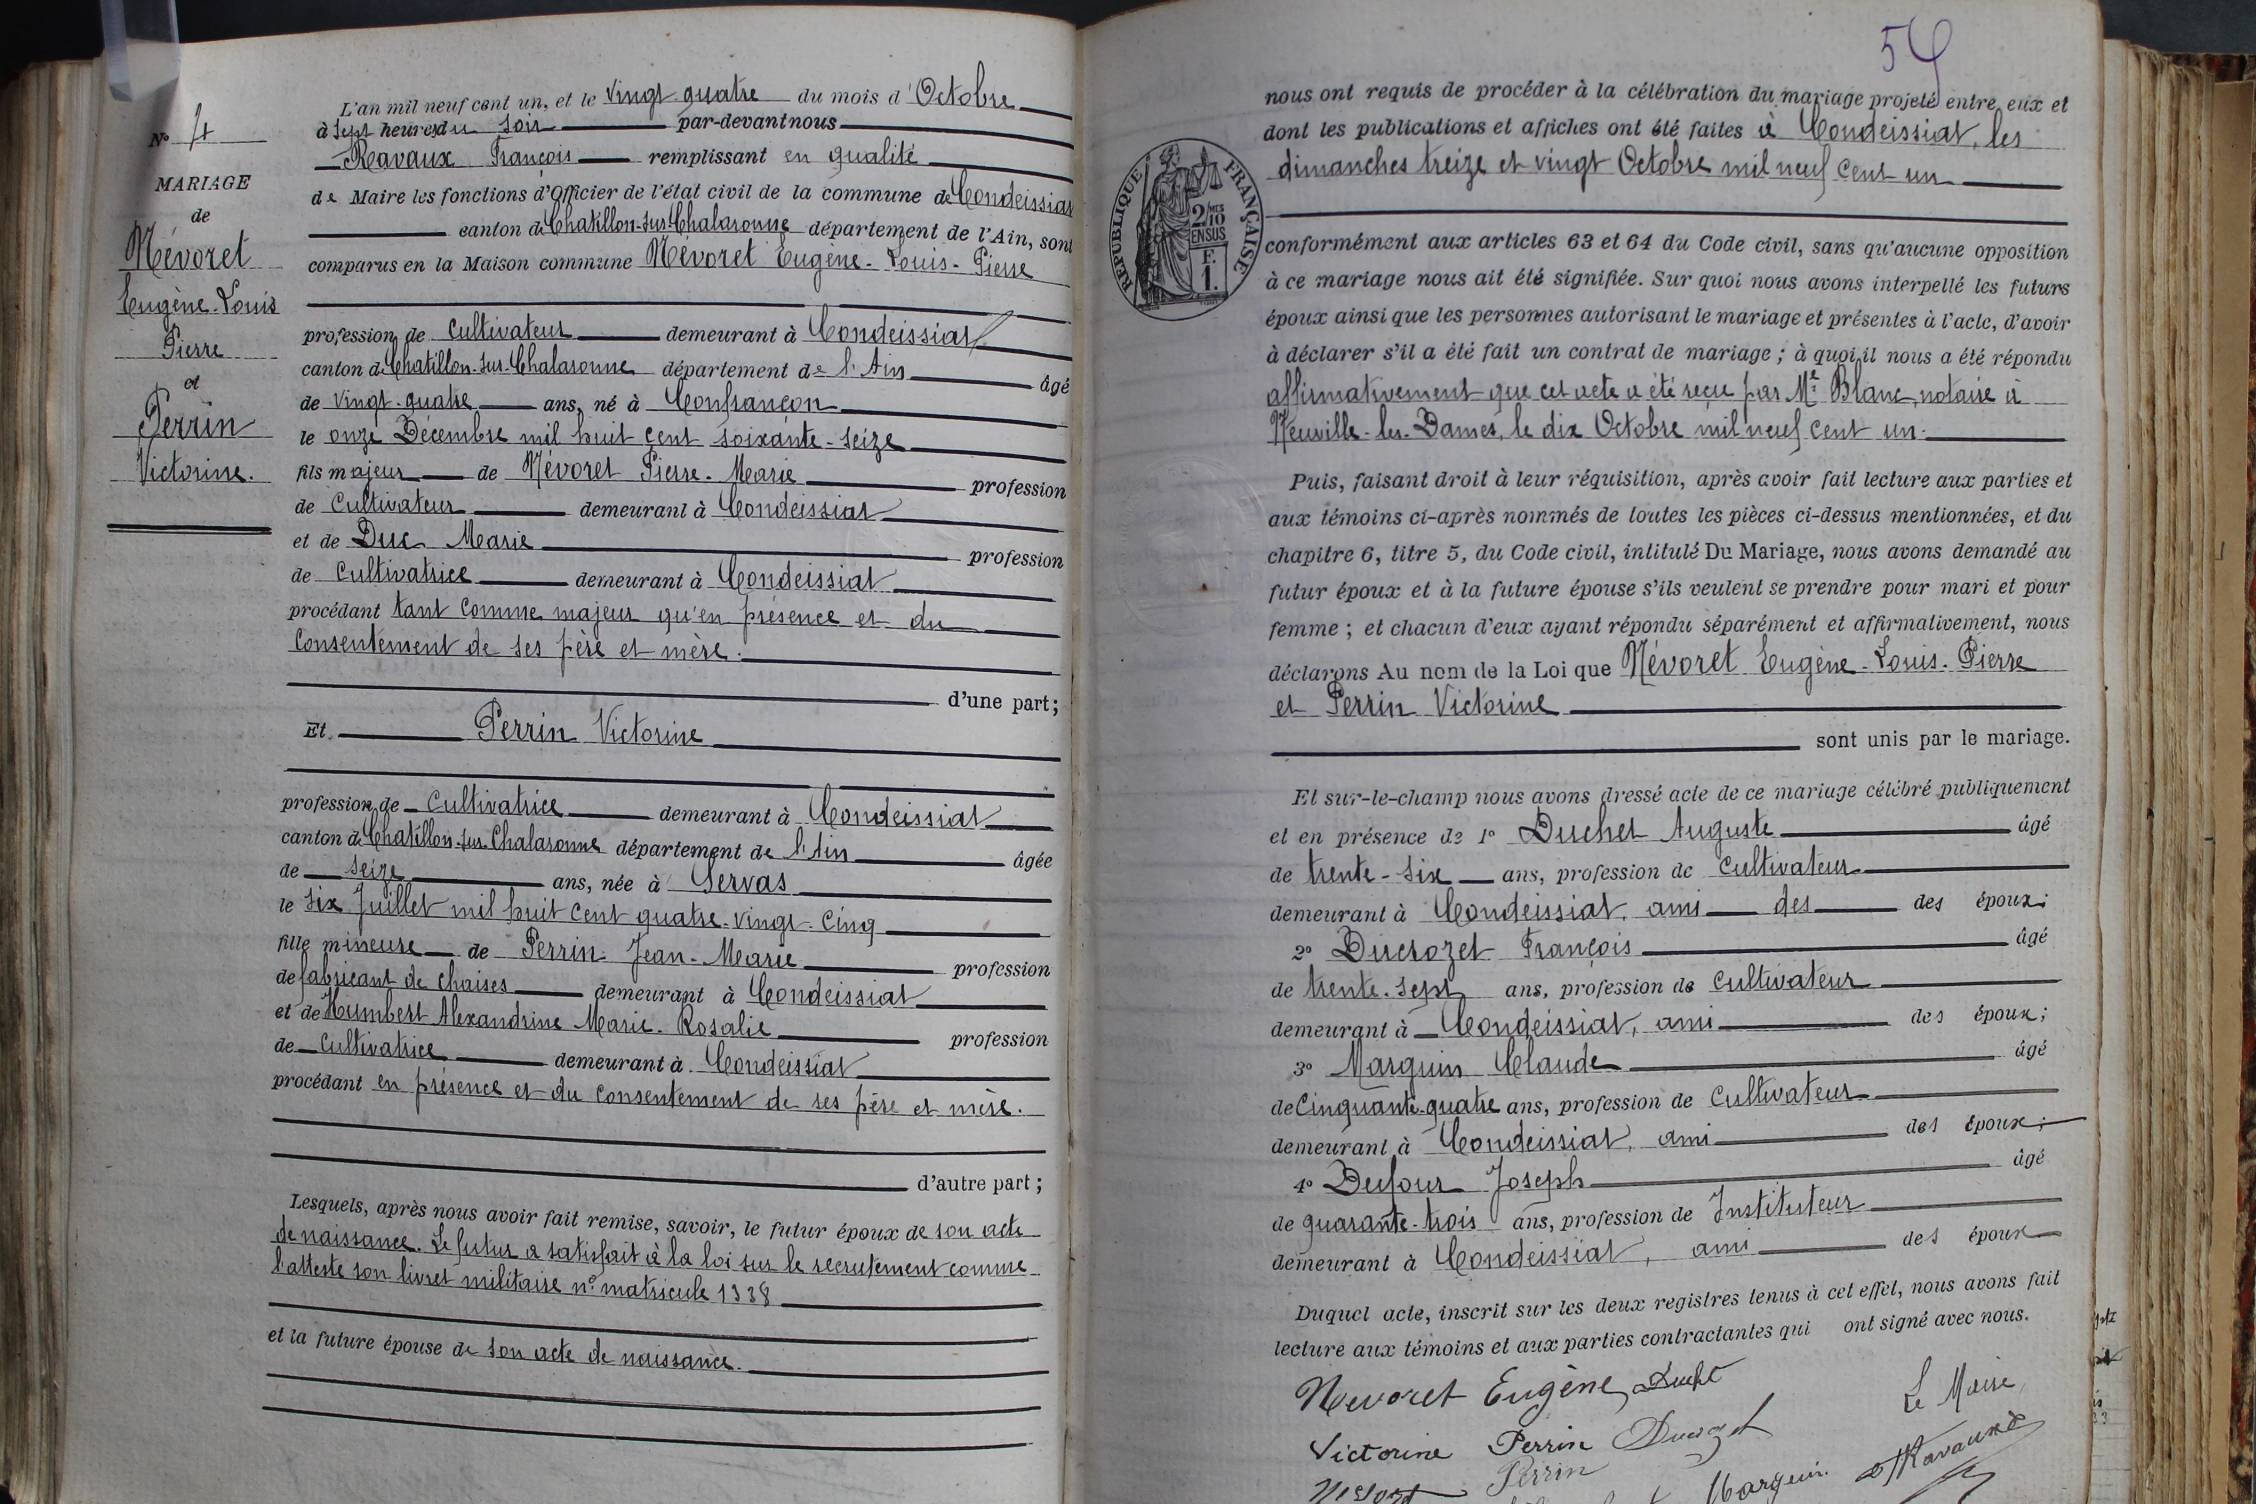 N° 4
MARIAGE
de
Névoret
Eugène-Louis
Pierre
et
Perrin
Victorine.
L'an mil neuf cent un, et le vingt quatre du mois d'Octobre
à sept heures du soir par-devant nous
Ravaux François remplissant en qualité
de Maire les fonctions d'Officier de l'état civil de la commune de Condeissiat
canton de Chatillon-sur-Chalaronne département de l'Ain, sont
comparus en la Maison commune Névoret Eugène-Louis-Pierre
profession de cultivateur demeurant à Condeissiat
canton de Chatillon-sur-Chalaronne département de l'Ain âgé
de vingt-quatre ans, né à Confrançon
le onze Décembre mil huit cent soixante-seize
fils majeur de Névoret Pierre-Marie profession
de Cultivateur demeurant à Condeissiat
et de Duc Marie profession
de Cultivatrice demeurant à Condeissiat
procédant tant comme majeur qu'en présence et du
consentement de ses père et mère.
d'une part;
Et Perrin Victorine
profession de Cultivatrice demeurant à Condeissiat
canton de Chatillon-sur-Chalaronne département de l'Ain âgée
de seize ans, née à Servas
le six Juillet mil huit cent quatre-vingt-cinq
fille mineure de Perrin Jean-Marie profession
de fabricant de chaises demeurant à Condeissiat
et de Humbert Alexandrine Marie-Rosalie profession
de Cultivatrice demeurant à Condeissiat
procédant en présence et du consentement de ses père et mère.
d'autre part;
Lesquels, après nous avoir fait remise, savoir, le futur époux de son acte
de naissance. Le futur a satisfait à la loi sur le recrutement comme
l'atteste son livret militaire n° matricule 1338
et la future épouse de son acte de naissance.
54
nous ont requis de procéder à la célébration du mariage projeté entre eux et
dont les publications et affiches ont été faites à Condeissiat, les
dimanches treize et vingt Octobre mil neuf cent un
RÉPUBLIQUE FRANÇAISE
2/10
MES
EN SUS
F.
1.
conformément aux articles 63 et 64 du Code civil, sans qu'aucune opposition
à ce mariage nous ait été signifiée. Sur quoi nous avons interpellé les futurs
époux ainsi que les personnes autorisant le mariage et présentes à l'acte, d'avoir
à déclarer s'il a été fait un contrat de mariage; à quoi il nous a été répondu
affirmativement que cet acte a été reçu par Me Blanc, notaire à
Neuville-les-Dames, le dix Octobre mil neuf cent un.
Puis, faisant droit à leur réquisition, après avoir fait lecture aux parties et
aux témoins ci-après nommés de toutes les pièces ci-dessus mentionnées, et du
chapitre 6, titre 5, du Code civil, intitulé Du Mariage, nous avons demandé au
futur époux et à la future épouse s'ils veulent se prendre pour mari et pour
femme; et chacun d'eux ayant répondu séparément et affirmativement, nous
déclarons Au nom de la Loi que Névoret Eugène-Louis-Pierre
et Perrin Victorine
sont unis par le mariage.
Et sur-le-champ nous avons dressé acte de ce mariage célébré publiquement
et en présence de 1° Duchet Auguste âgé
de trente-six ans, profession de cultivateur
demeurant à Condeissiat, ami des des époux;
2° Ducrozet François âgé
de trente-sept ans, profession de cultivateur
demeurant à Condeissiat, ami des époux;
3° Marguin Claude âgé
de Cinquante-quatre ans, profession de cultivateur
demeurant à Condeissiat, ami des époux;
4° Dufour Joseph âgé
de quarante-trois ans, profession de Instituteur
demeurant à Condeissiat, ami des époux
Duquel acte, inscrit sur les deux registres tenus à cet effet, nous avons fait
lecture aux témoins et aux parties contractantes qui ont signé avec nous.
Nevoret Eugène Duchet
Le Maire
Victorine Perrin Ducrozet
Perrin
Marguin
Ravaux